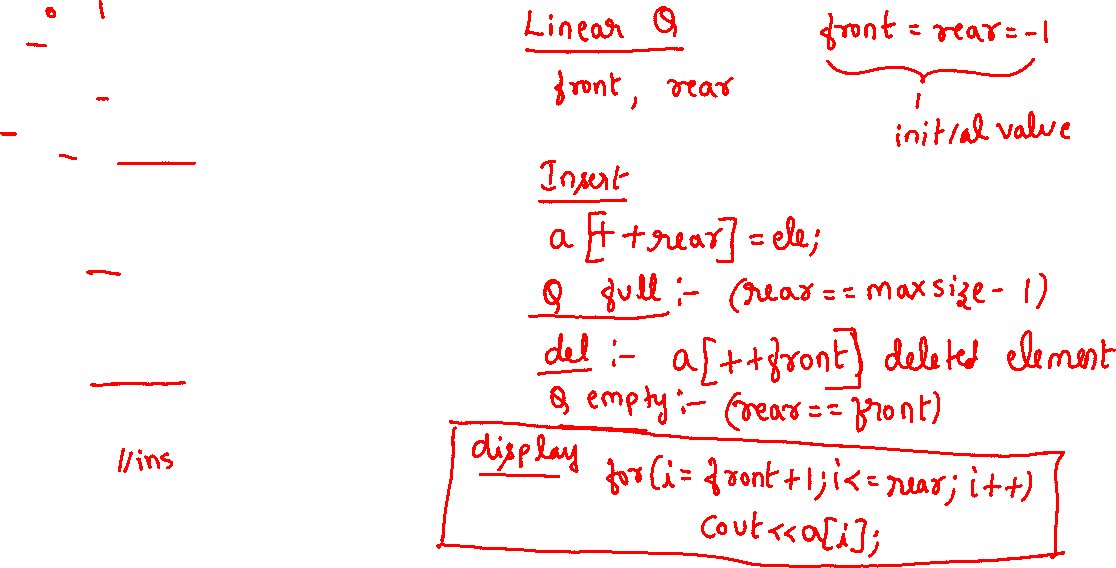 0 1
Linear Q
front = rear = -1
front, rear
initial value
Insert
a[++rear] = ele;
Q full :- (rear == maxsize - 1)
del :- a[++front] deleted element
Q empty :- (rear == front)
display
for(i = front+1; i <= rear; i++)
cout<<a[i];
//ins